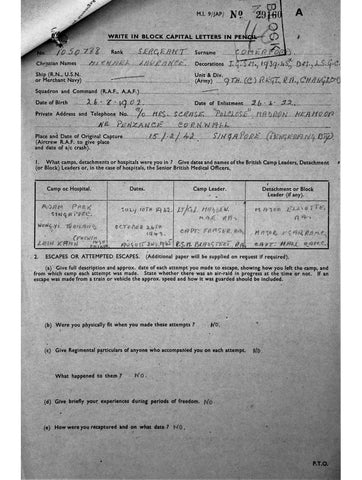 M.I. 9/JAP/ No 29160 A
WRITE IN BLOCK CAPITAL LETTERS IN PENCIL
No. 1050788 Rank SERGEANT Surname
Christian Names MICHAEL LAURANCE Decorations
Ship (R.N., U.S.N. or Merchant Navy)
Unit & Div. (Army) 9TH. (C) REGT. RA., CHANGI
Squadron and Command (R.A.F., A.A.F.)
Date of Birth 26-8-1902 Date of Enlistment 26-6-22.
Private Address and Telephone No. C/O MRS. SCRASE "POLCLOSE" MADRON HEAMOOR
NR PENZANCE CORNWALL
Place and Date of Original Capture 15/2/42 SINGAPORE
(Aircrew R.A.F. to give place and date of a/c crash).
1. What camps, detachments or hospitals were you in ? Give dates and names of the British Camp Leaders, Detachment
(or Block) Leaders or, in the case of hospitals, the Senior British Medical Officers.
Camp or Hospital. Dates. Camp Leader. Detachment or Block Leader (if any).
ADAM PARK SINGAPORE. JULY 10TH 1942. MAJOR
THAILAND OCTOBER 1942. CAPT. FRASER, RA. MAJOR
AUGUST 1945 CAPT. HALL RAMC.
2. ESCAPES OR ATTEMPTED ESCAPES. (Additional paper will be supplied on request if required).
(a) Give full description and approx. date of each attempt you made to escape, showing how you left the camp, and
from which camp each attempt was made. State whether there was an air-raid in progress at the time or not. If an
escape was made from a train or vehicle the approx. speed and how it was guarded should be included.
(b) Were you physically fit when you made these attempts ? NO.
(c) Give Regimental particulars of anyone who accompanied you on each attempt. NO
What happened to them ? NO.
(d) Give briefly your experiences during periods of freedom. NO
(e) How were you recaptured and on what date ? NO.
P.T.O.